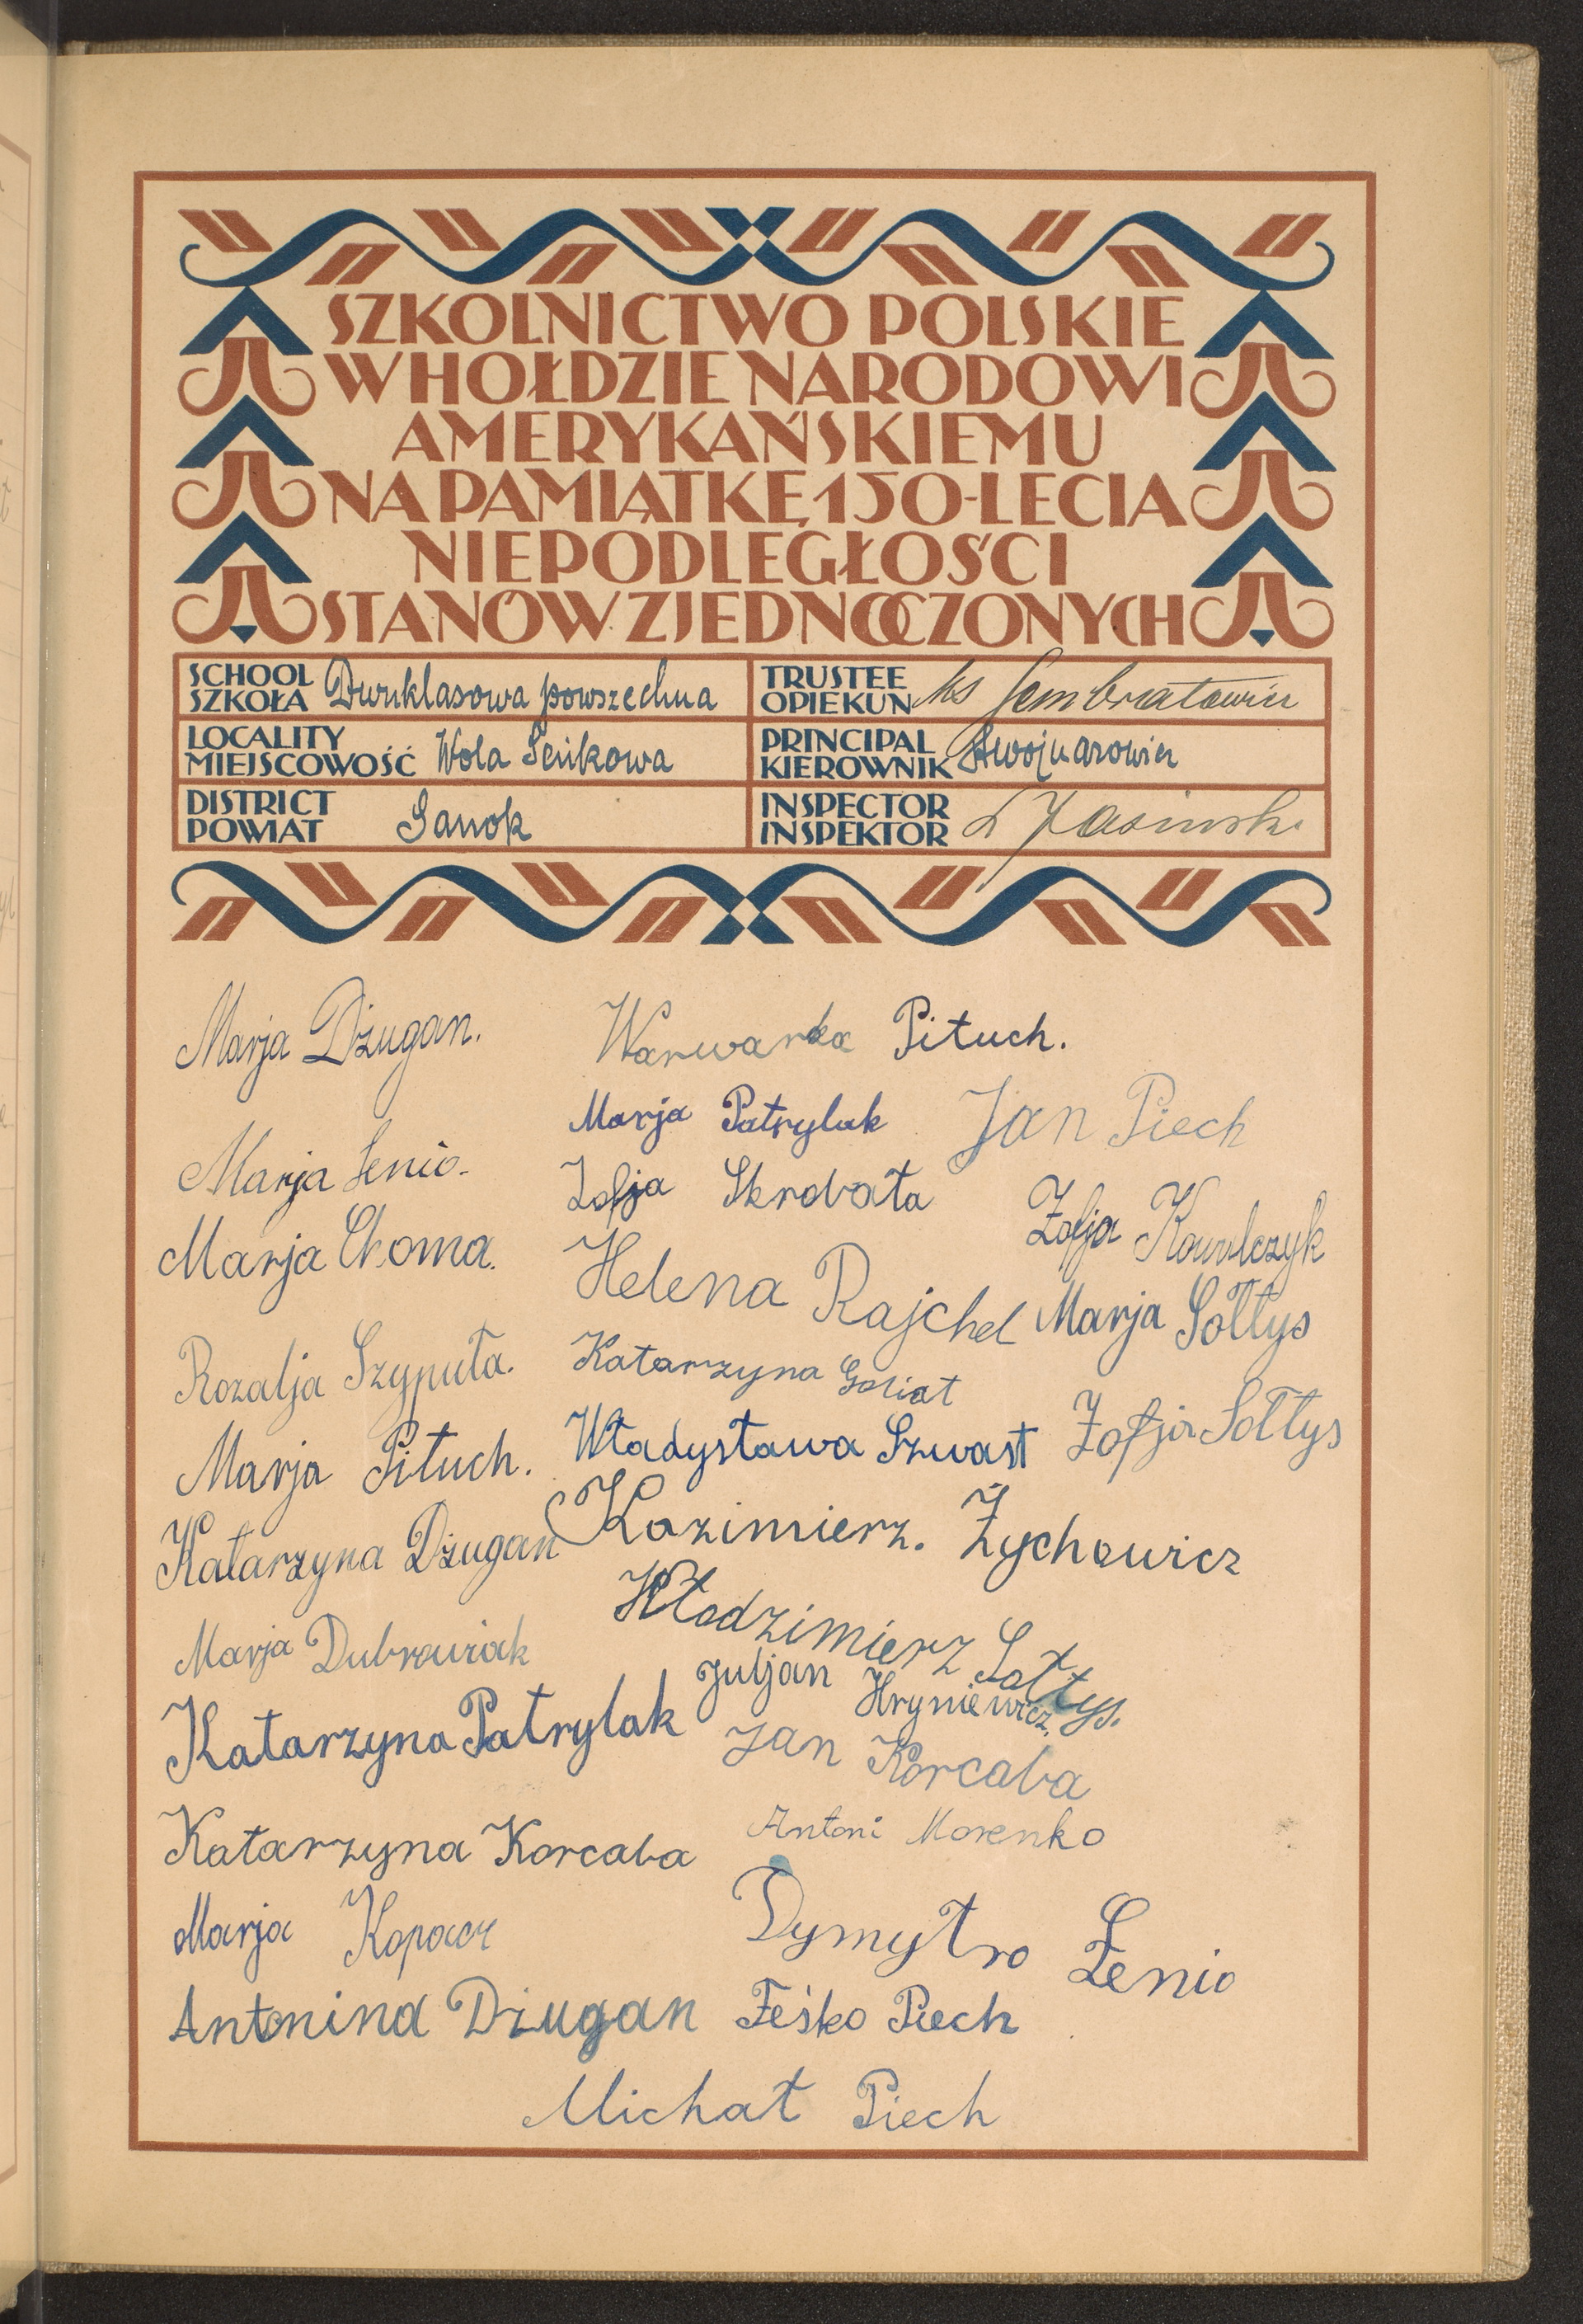 SZKOLNICTWO POLSKIE
W HOŁDZIE NARODOWI
AMERYKAŃSKIEMU
NA PAMIĄTKĘ 150-LECIA
NIEPODLEGŁOŚCI
STANÓW ZJEDNOCZONYCH
SCHOOL
SZKOŁA Dwuklasowa powszechna
TRUSTEE
OPIEKUN ks Sembratowicz
LOCALITY
MIEJSCOWOŚĆ Wola Seńkowa
PRINCIPAL
KIEROWNIK
DISTRICT
POWIAT Sanok
INSPECTOR
INSPEKTOR
Marja Dżugan.
Marja Senio.
Marja Choma.
Rozalja Szyputa.
Marja Pituch.
Katarzyna Dżugan
Marja Dubrowiak
Katarzyna Patrylak
Katarzyna Korcaba
Marja Kopacz
Antonina Dżugan
Warwarka Pituch.
Marja Patrylak
Zofja Skrobata
Helena Rajchel
Katarzyna Goliat
Władysława Szwast
Kazimierz. Żychowicz
Włodzimierz Sołtys.
Juljan Hryniewicz.
Jan Korcaba
Antoni Morenko
Dymytro Senio
Feśko Piech
Michał Piech
Jan Piech
Zofja Kowalczyk
Marja Sołtys
Zofja Sołtys